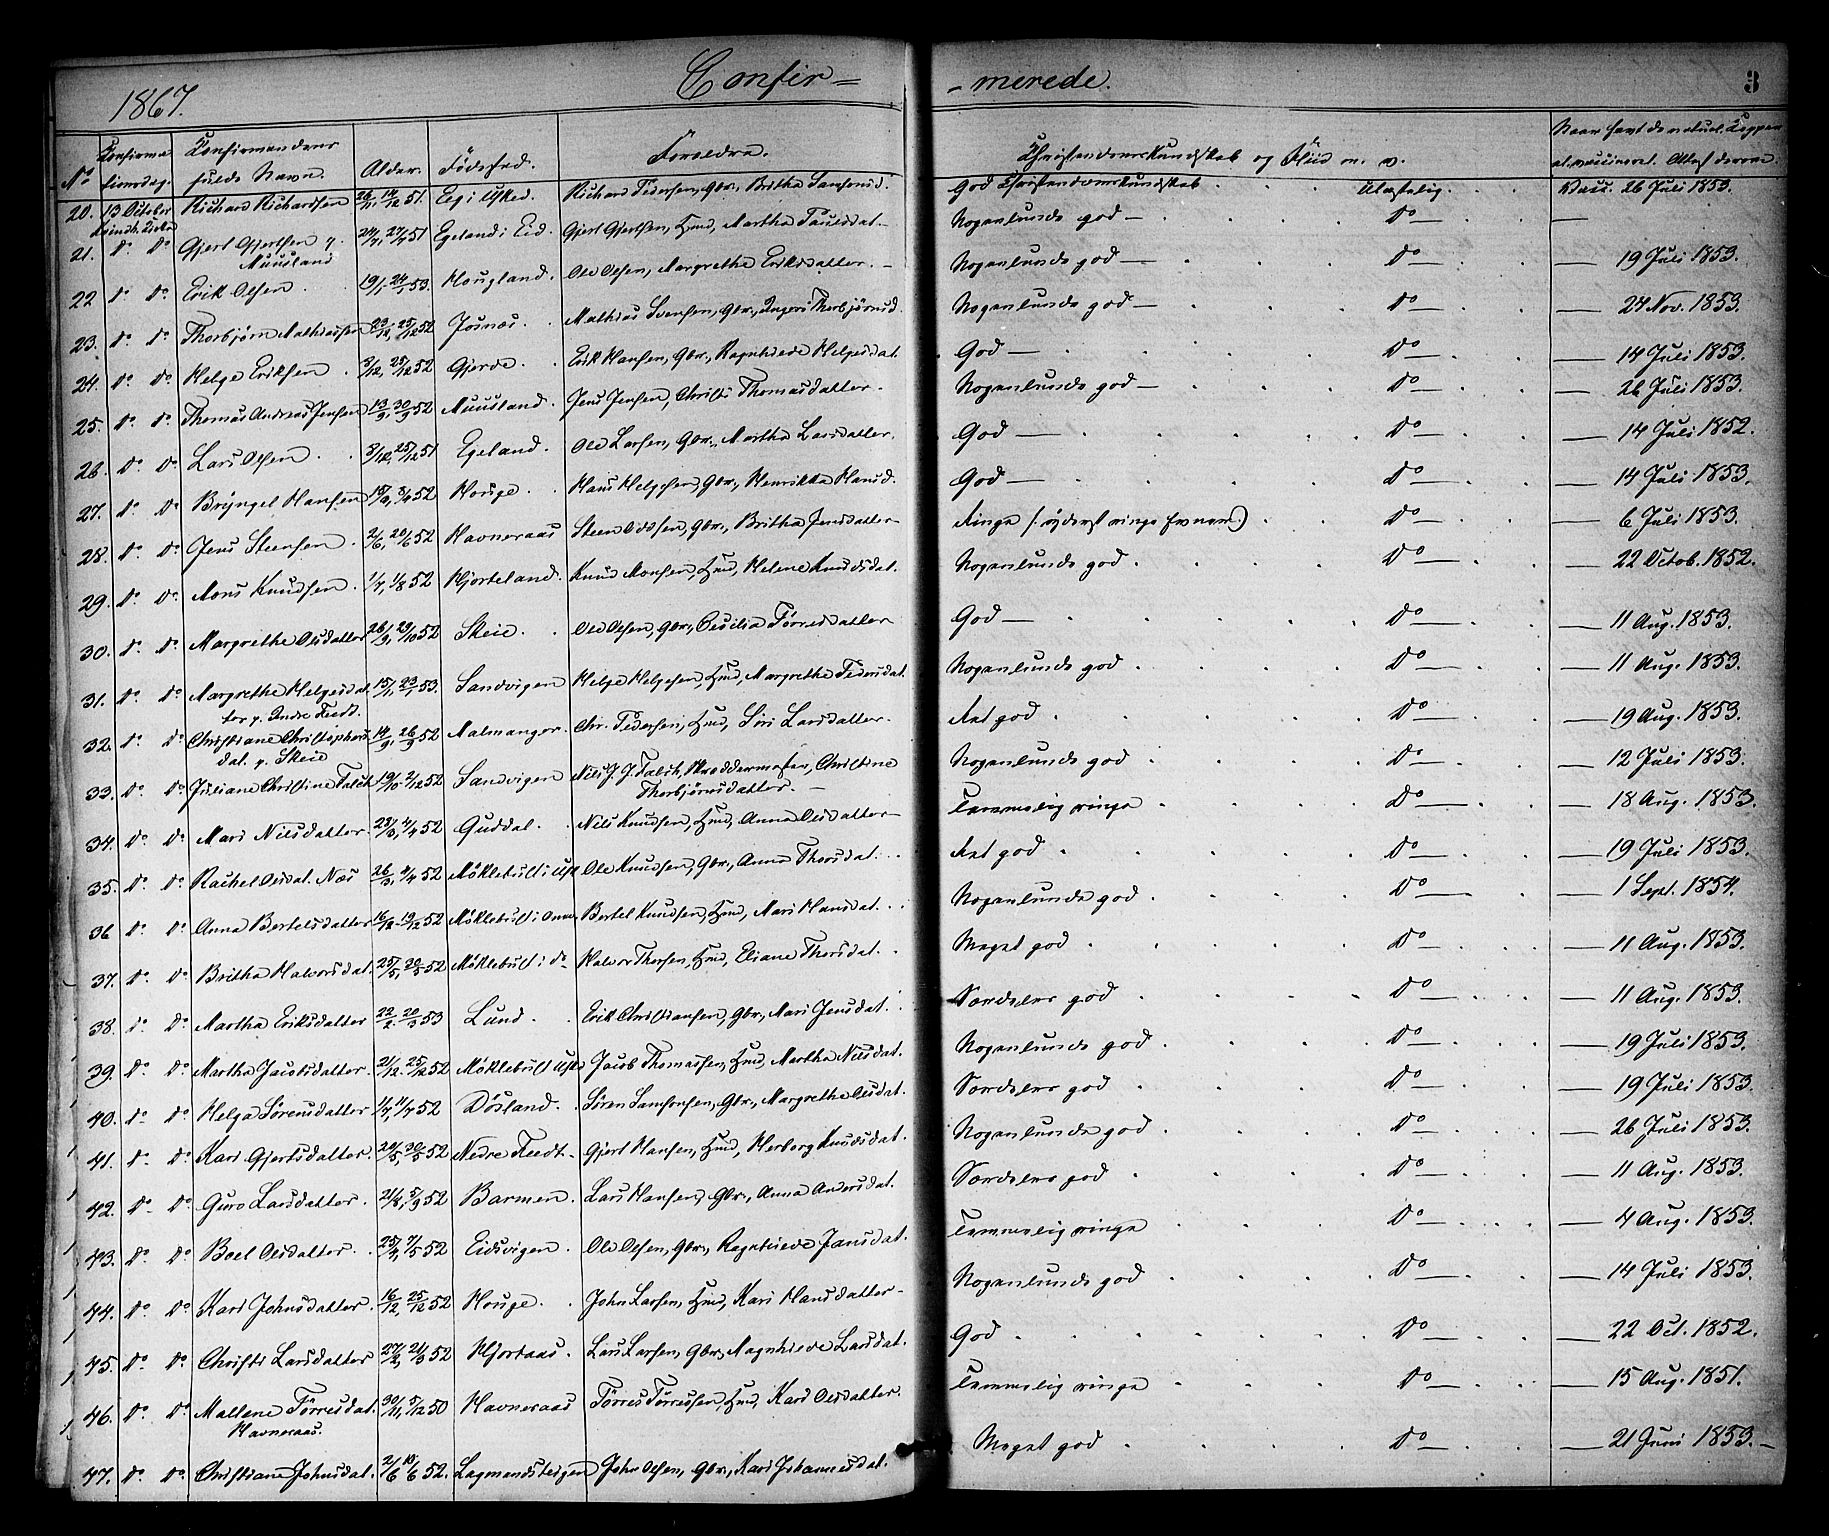 1867.
Confir-
-merede.
3
No
Confirma
tionsdag.
Konfirmandens
fulde Navn.
Alder.
Fødested.
Forældre.
Christendomskundskab og Flid m. v.
Naar samt de naturl. Kopper
el. vaccineret. Attest derom.
20. 13 October Richard Richardsen 26/11, 14/12 51. Eeg i Ulsked. Richard Pedersen, Gbr., Britha Samsonsd. God Christendomskundskab Ulastelig Vacc. 26 Juli 1853.
Qvindh. Kirke
21. do do Gjert Gjertsen p. 24/7, 27/7 51 Egeland i Eid. Gjert Gjertsen, Hmd, Martha Poulsdat. Nogenlunde god do
Muusland
22 do do. Erik Olsen 19/1, 24/1 53. Hougland. Ole Olsen, Margrethe Eriksdatter. Nogenlunde god do 19 Juli 1853.
23. do do. Thorbjørn Mathiassen 23/12, 25/12 52 Josnæs. Mathias Svensen, Gbr., Ingeri Thorbjørnsd. Nogenlunde god do 24 Nov. 1853.
24. do do. Helge Eriksen 5/12, 25/12 52 Gjerde. Erik Hansen, Gbr., Ragnhilde Helgesdat. God do 14 Juli 1853.
25. do do. Thomas Andreas Jensen 13/9, 30/9 52 Muusland. Jens Jensen, Christi Thomasdatter. Nogenlunde god do 26 Juli 1853.
26 do do. Lars Olsen 3/12, 25/12 51 Egeland. Ole Larsen, Gbr., Martha Larsdatter. God do 14 Juli 1852.
27. do do. Brÿngel Hansen 52 Houge. Hans Helgesen, Gbr., Henrikka Hansd. God do 14 Juli 1853.
28. do do. Jens Steensen 2/6, 20/6 52 Havneraas Steen Oddsen, Gbr., Britha Jensdatter Ringe (: yderst ringe Evner:) do 6 Juli 1853.
29. do do. Mons Knudsen 1/7, 1/8 52 Hjorteland. Knud Monsen, Hmd, Helene Knudsdat. Nogenlunde god do 22 Octob. 1852.
30. do do. Margrethe Olsdatter 26/9, 29/10 52 Skeie. Ole Olsen, Gbr., Cecilia Tørresdatter God do 11 Aug. 1853.
31. do do. Margrethe Helgesdat 15/1, 23/1 53. Sandvigen Helge Helgesen, Hmd, Margrethe Pedersdat. Nogenlunde god do 11 Aug. 1853.
ter p. Indre Feedt.
32. do do Christiane Christophers 14/9, 26/9 52 Malmanger. Chr. Pedersen, Hmd, Siri Larsdatter. Ret god do 19 Aug. 1853.
dat. p. Skeie
33. do do. Juliane Christine Falch 19/10, 2/12 52 Sandvigen Nils J. J. Falch, Skræddermester, Christine Nogenlunde god do 12 Juli 1853.
Thorbjørnsdatter.
34. do do. Mari Nilsdatter 23/3, 4/4 52 Guddal. Nils Knudsen, Hmd, Anna Olsdatter Temmelig ringe do 18 Aug. 1853.
35. do do. Rachel Olsdat. Næs 26/3, 4/4 52 Møklebust i Ulsk Ole Knudsen, Gbr., Anna Thorsdat. Ret god do 19 Juli 1853.
36 do do. Anna Bertelsdatter 52 Møklebust i Omv. Bertel Knudsen, Hmd, Mari Hansdat. Nogenlunde god do 1 Sept. 1854.
37. do do. Britha Halvorsdat. 52 Møklebust i do Halvor Thorsen, Hmd, Eliane Thorsdat. Meget god do 11 Aug. 1853.
38. do do. Martha Eriksdatter 22/2, 20/3 53 Lund. Erik Christiansen, Gbr., Mari Jensdat. Særdeles god do 11 Aug. 1853.
39. do do. Martha Jacobsdatter. 2/12, 25/12 52 Møklebust Ulsk Jacob Thomassen, Hmd, Martha Nilsdat. Nogenlunde god do 19 Juli 1853.
40. do do. Helga Sørensdatter 1/7, 11/7 52 Døsland. Søren Samsonsen, Gbr., Margrethe Olsdat. Særdeles god do 19 Juli 1853
41. do do. Kari Gjertsdatter. 52 Nedre Feedt Gjert Hansen, Hmd, Herborg Knudsdat. Nogenlunde god do 26 Juli 1853.
42. do do. Guro Larsdatter. 21/8, 5/9 52 Barmen. Lars Hansen, Gbr., Anna Andersdat. Særdeles god do 11 Aug. 1853.
43. do do. Boel Olsdatter. 52 Eidsvigen. Ole Olsen, Gbr., Ragnhilde Jansdat. Temmelig ringe do 4 Aug. 1853.
44. do do. Kari Johnsdatter. 16/12, 25/12 52 Houge. John Larsen, Hmd, Kari Hansdatter Nogenlunde god do 14 Juli 1853.
45. do do. Christi Larsdatter 27/2, 21/3 52 Hjortaas. Lars Larsen, Gbr., Magnhilde Larsdat. God do 22 Oct. 1852.
46. do do. Mallene Tørresdat. 30/11, 5/12 50 Havneraas Tørres Tørressen, Hmd, Kari Olsdatter. Temmelig ringe do 15 Aug. 1851.
Havneraas.
47. do do. Christiane Johnsdat. 52. Lagmandsteigen John Olsen, Gbr., Kari Johannesdat. Meget god do 21 Juni 1853.